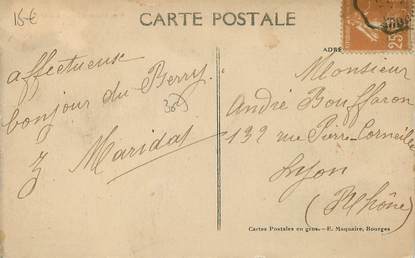 15€
CARTE POSTALE
ADRE
affectueuse
bonjour du Berry
30
Z Maridat
Monsieur
André Bouffaron
132 rue Pierre-Corneille
Lyon
(Rhône)
25
Cartes Postales en gros. — E. Maquaire, Bourges